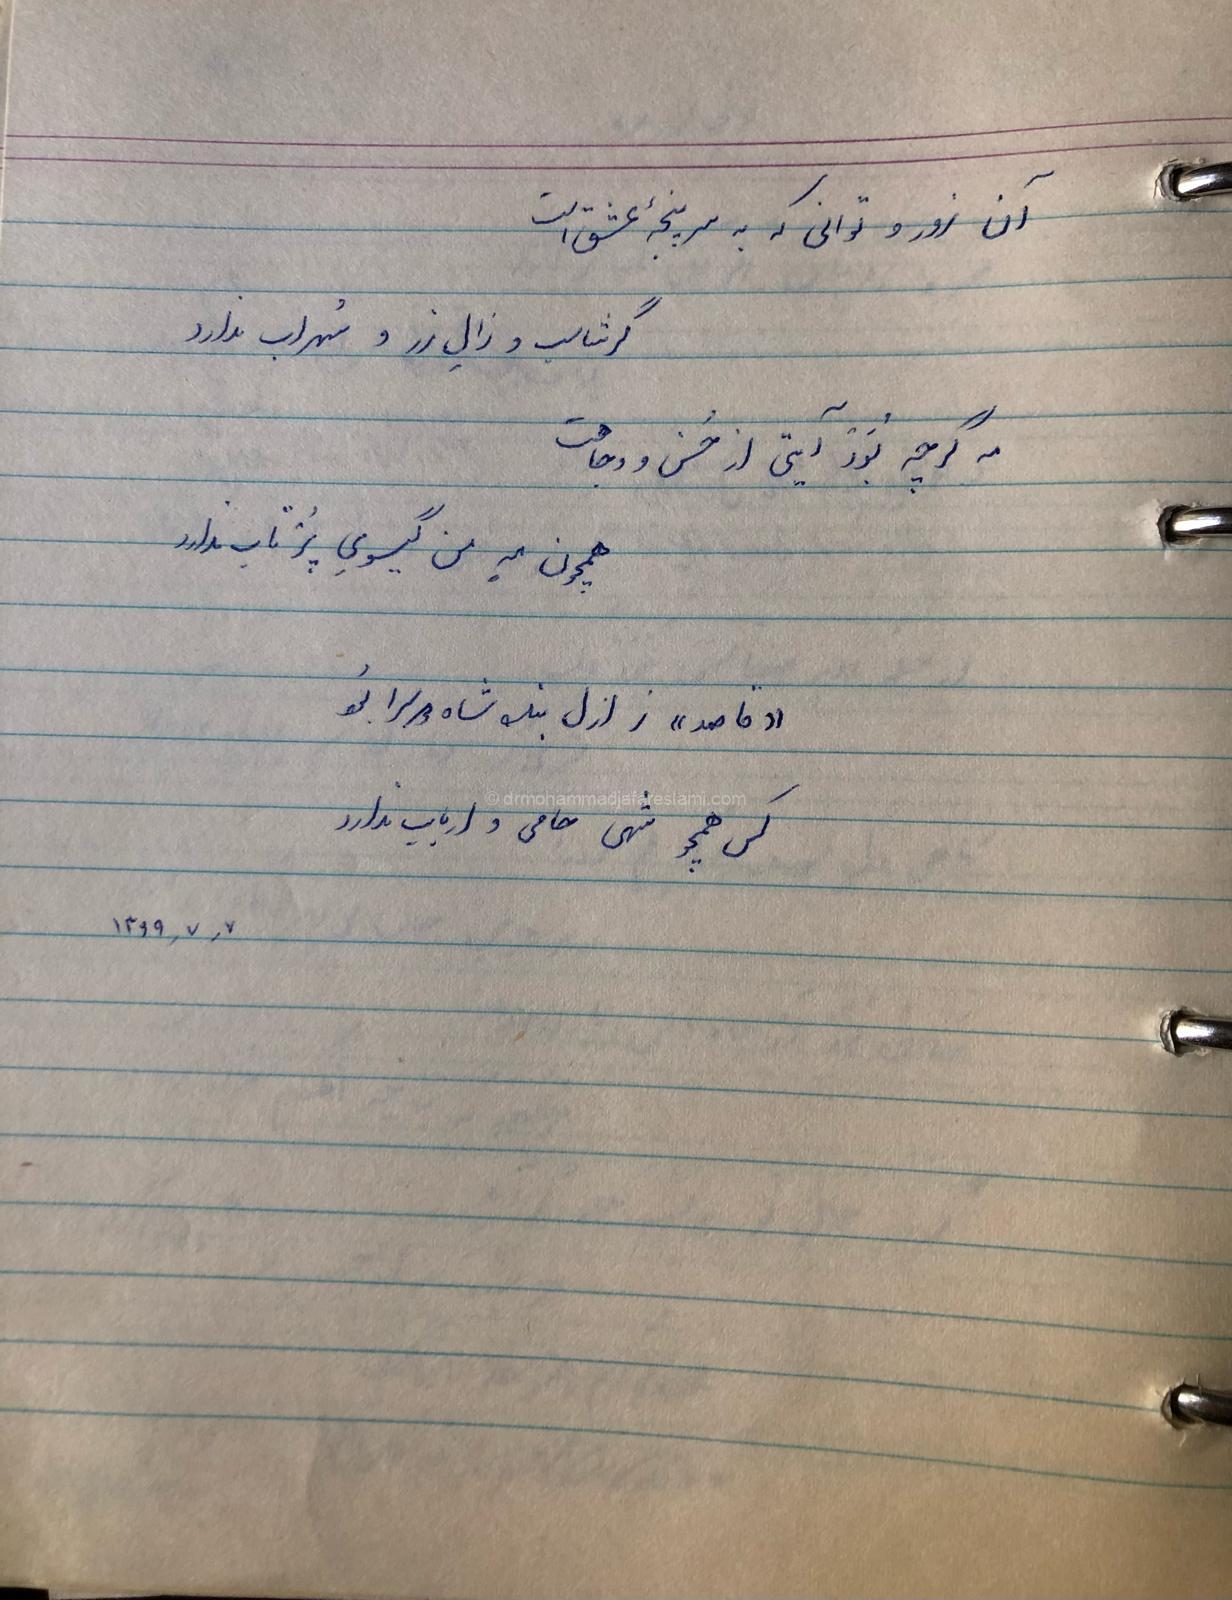 آن زور و توانی که به سرپنجهٔ عشق است
گرشاسب و زالِ زر و سُهراب ندارد
مه گرچه بُوَد آیتی از حُسن و وجاهت
همچون مهِ من گیسویِ پُرتاب ندارد
«قاصد» ز ازل بنده شاه
کس همچو شهی حامی و ارباب ندارد
© drmohammadjafareslami.com
۱۳۹۹٫۷٫۷